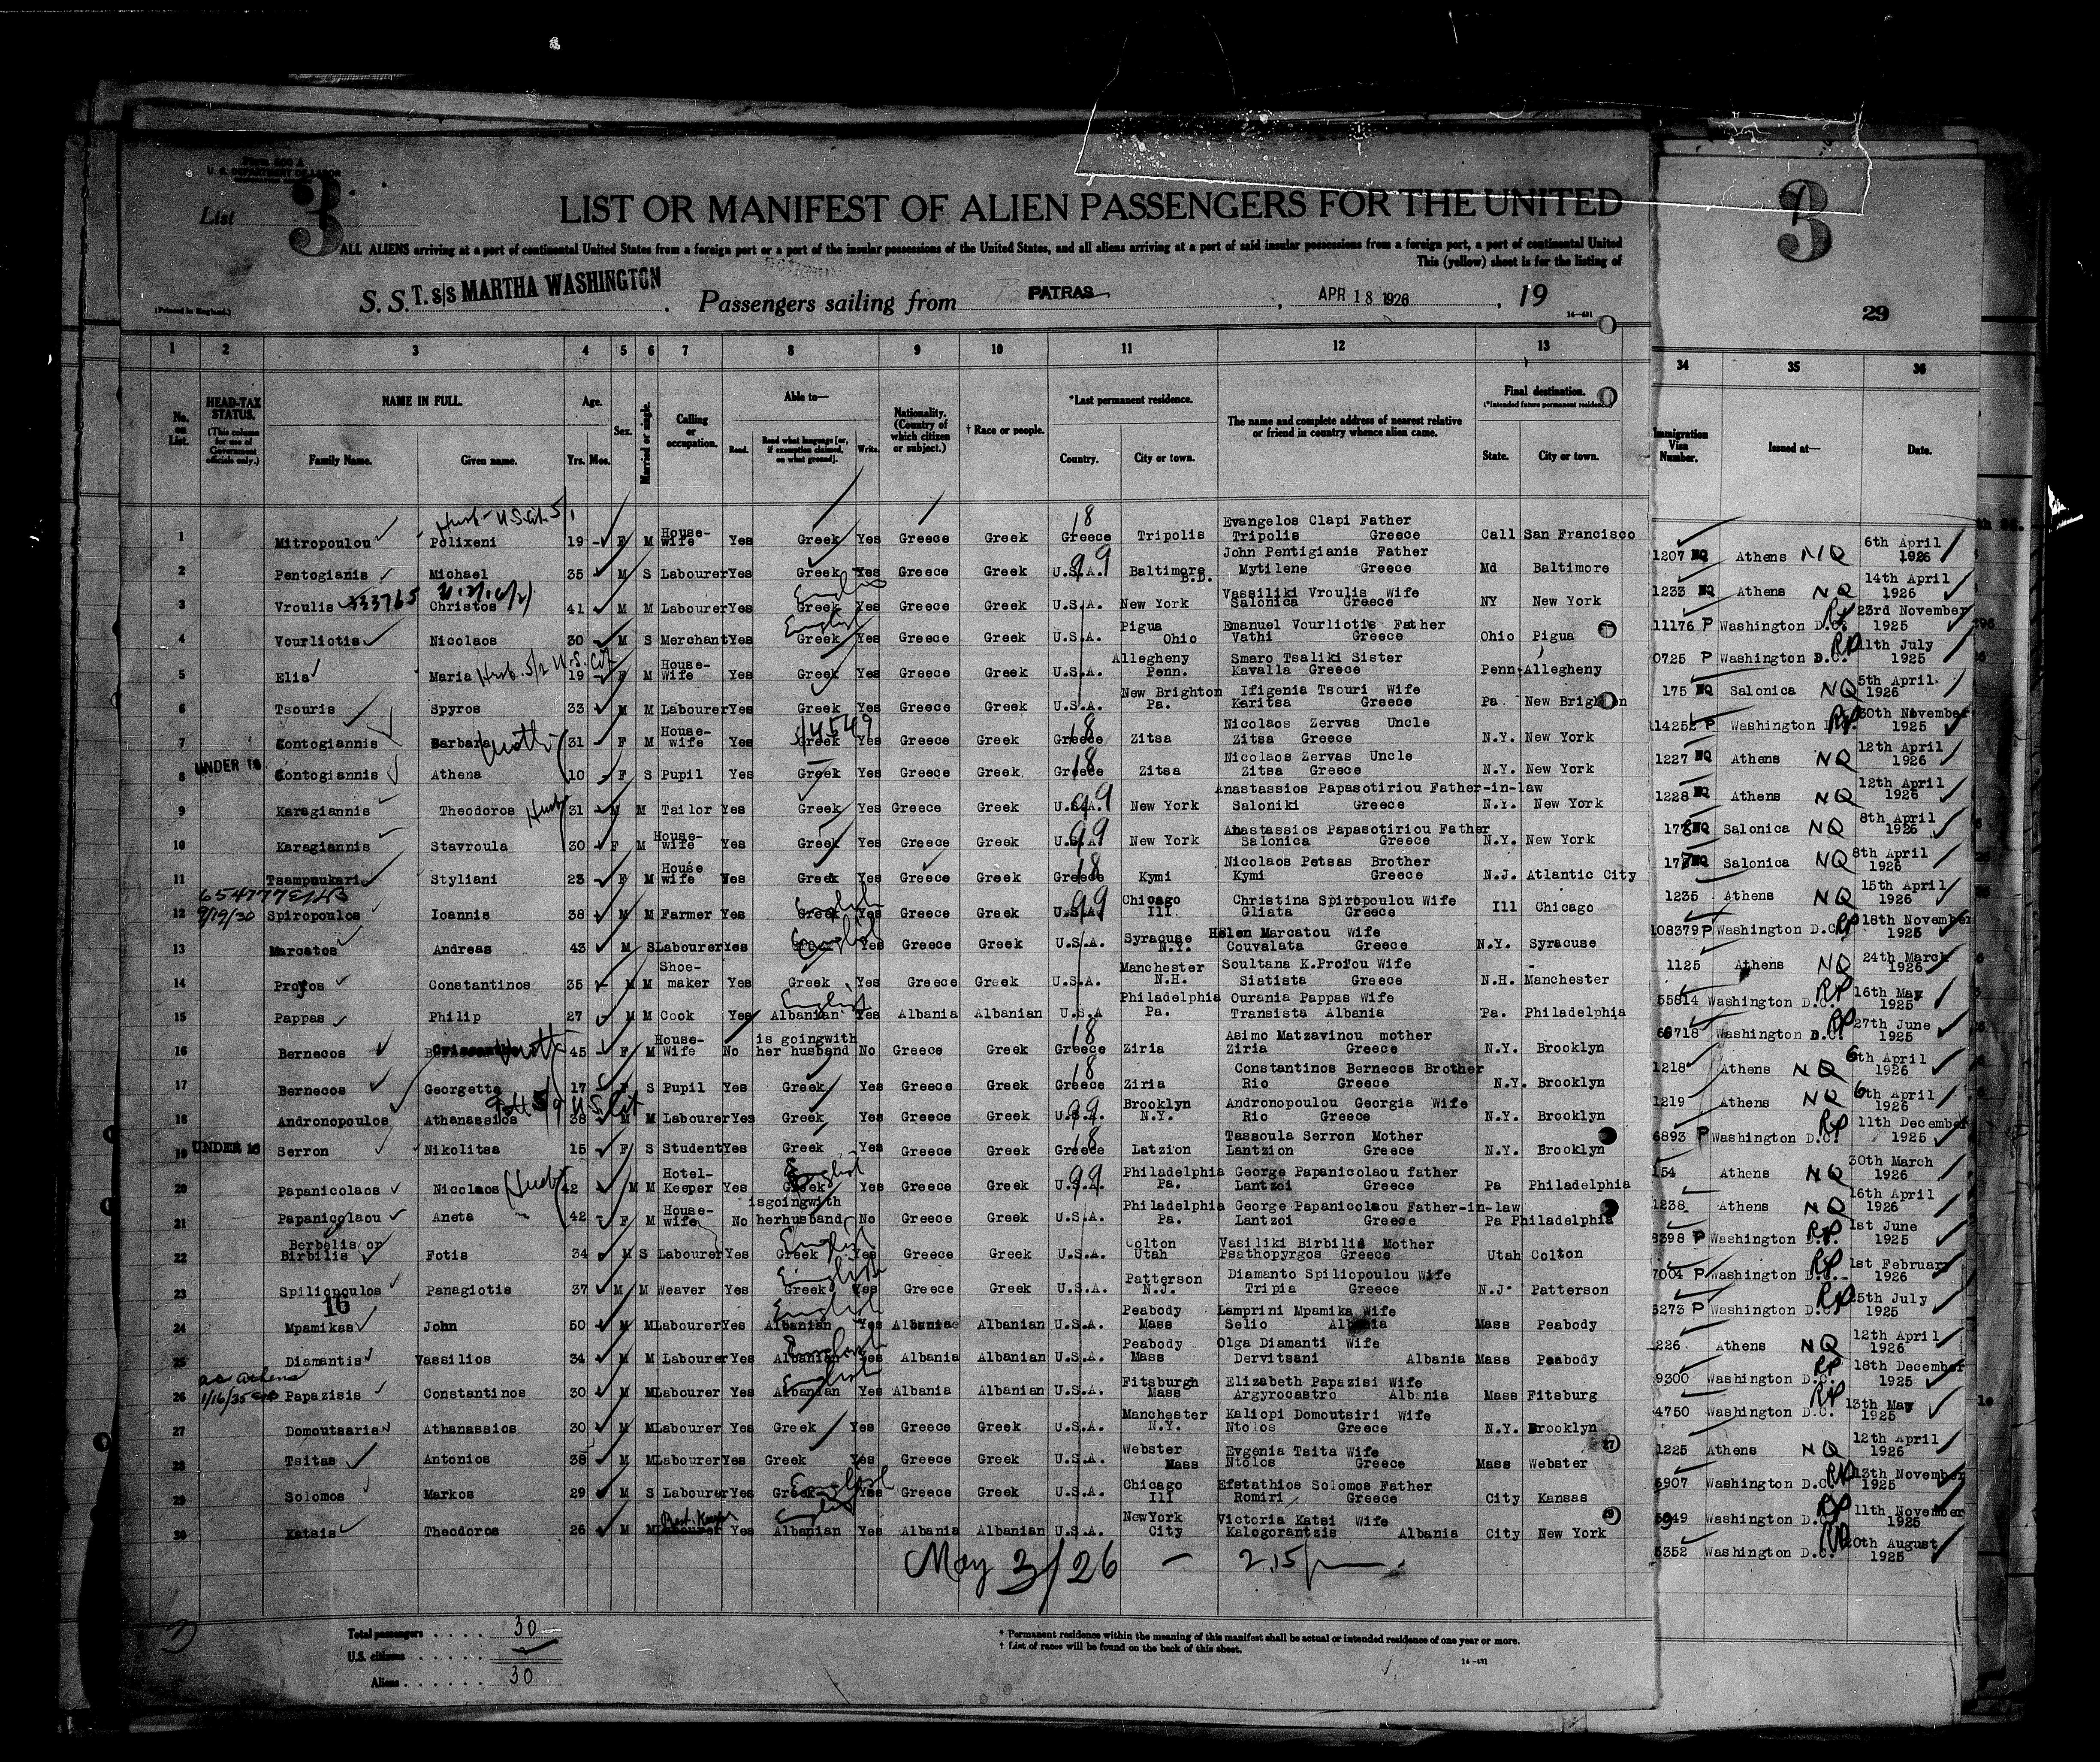 Form 500 A
U. S. DEPARTMENT OF LABOR
List 3
3
29
LIST OR MANIFEST OF ALIEN PASSENGERS FOR THE UNITED
ALL ALIENS arriving at a port of continental United States from a foreign port or a port of the insular possessions of the United States, and all aliens arriving at a port of said insular possessions from a foreign port, a port of continental United
This (yellow) sheet is for the listing of
(Printed in England.)
S. S. T. s/s MARTHA WASHINGTON . Passengers sailing from PATRAS , APR 18 1926 , 19
14—431
1 2 3 4 5 6 7 8 9 10 11 12 13 34 35 36
No. on List. HEAD-TAX STATUS. (This column for use of Government officials only.) NAME IN FULL. Family Name. Given name. Age. Yrs. Mos. Sex. Married or single. Calling or occupation. Able to— Read. Read what language [or, if exemption claimed, on what ground]. Write. Nationality. (Country of which citizen or subject.) † Race or people. *Last permanent residence. Country. City or town. The name and complete address of nearest relative or friend in country whence alien came. Final destination. (*Intended future permanent residence.) State. City or town. Immigration Visa Number. Issued at— Date.
Husb - U.S. Cit. 5/1
1 Mitropoulou Polixeni 19 F M House-wife Yes Greek Yes Greece Greek Greece 18 Tripolis Evangelos Clapi Father Tripolis Greece Call San Francisco
2 Pentogianis Michael 35 M S Labourer Yes Greek Yes Greece Greek U.S.A. 99 Baltimore John Pentigianis Father Mytilene Greece Md Baltimore
3 Vroulis 333765 Christos 41 M M Labourer Yes Greek English Yes Greece Greek U.S.A. New York Vassiliki Vroulis Wife Salonica Greece NY New York
4 Vourliotis Nicolaos 30 M S Merchant Yes Greek English Yes Greece Greek U.S.A. Pigua Ohio Emanuel Vourliotis Father Vathi Greece Ohio Pigua
5 Elia Maria Husb. 5/2 U.S. Cit 19 F M House-Wife Yes Greek Yes Greece Greek U.S.A. Allegheny Penn. Smaro Tsaliki Sister Kavalla Greece Penn Allegheny
6 Tsouris Spyros 33 M M Labourer Yes Greek Yes Greece Greek U.S.A. New Brighton Pa. Ifigenia Tsouri Wife Karitsa Greece Pa New Brighton
7 Contogiannis Barbara Moth 31 F M House-wife Yes Greek 14549 Yes Greece Greek Greece 18 Zitsa Nicolaos Zervas Uncle Zitsa Greece N.Y. New York
8 UNDER 16 Contogiannis Athena 10 F S Pupil Yes Greek Yes Greece Greek Greece 18 Zitsa Nicolaos Zervas Uncle Zitsa Greece N.Y. New York
9 Karagiannis Theodoros Husb 31 M M Tailor Yes Greek Yes Greece Greek U.S.A. 99 New York Anastassios Papasotiriou Father-in-law Saloniki Greece N.Y. New York
10 Karagiannis Stavroula 30 F M House-wife Yes Greek Yes Greece Greek U.S.A 99 New York Anastassios Papasotiriou Father Salonica Greece N.Y. New York
11 Tsampoukari Styliani 23 F M House wife Yes Greek Yes Greece Greek Greece 18 Kymi Nicolaos Petsas Brother Kymi Greece N.J. Atlantic City
12 9/19/30 Spiropoulos Ioannis 38 M M Farmer Yes Greek English Yes Greece Greek U.S.A. 99 Chicago Ill Christina Spiropoulou Wife Gliata Greece Ill Chicago
13 Marcatos Andreas 43 M S Labourer Yes English Yes Greece Greek U.S.A. Syracuse N.Y. Helen Marcatou Wife Couvalata Greece N.Y. Syracuse
14 Profos Constantinos 35 M M Shoe-maker Yes Greek Yes Greece Greek U.S.A. Manchester N.H. Soultana K.Profou Wife Siatista Greece N.H. Manchester
15 Pappas Philip 27 M M Cook Yes Albanian English Yes Albania Albanian U.S.A Philadelphia Pa. Ourania Pappas Wife Transista Albania Pa. Philadelphia
16 Bernecos Moth 45 F M House-Wife No is goingwith her husband No Greece Greek Greece 18 Ziria Asimo Matzavinou mother Ziria Greece N.Y. Brooklyn
17 Bernecos Georgette 17 F S Pupil Yes Greek Yes Greece Greek Greece 18 Ziria Constantinos Bernecos Brother Rio Greece N.Y. Brooklyn
18 Andronopoulos Athanassios 38 M M Labourer Yes Greek Yes Greece Greek U.S.A. 99 Brooklyn N.Y. Andronopoulou Georgia Wife Rio Greece N.Y. Brooklyn
19 UNDER 16 Serron Nikolitsa 15 F S Student Yes Greek Yes Greece Greek Greece 18 Latzion Tassoula Serron Mother Lantzion Greece N.Y. Brooklyn
20 Papanicolaos Nicolaos Husb 42 M M Hotel-Keeper Yes Greek English Yes Greece Greek U.S.A. 99 Philadelphia Pa. George Papanicolaou father Lantzoi Greece Pa Philadelphia
21 Papanicolaou Aneta 42 F M House-wife No isgoingwith herhusband No Greece Greek U.S.A. Philadelphia Pa. George Papanicolaou Father-in-law Lantzoi Greece Pa Philadelphia
22 Berbelis or Birbilis Fotis 34 M S Labourer Yes Greek English Yes Greece Greek U.S.A. Colton Utah Vasiliki Birbilis Mother Psathopyrgos Greece Utah Colton
23 Spiliopoulos Panagiotis 37 M M Weaver Yes Greek English Yes Greece Greek U.S.A. Patterson N.J. Diamanto Spiliopoulou Wife Tripia Greece N.J. Patterson
16
24 Mpamikas John 50 M M Labourer Yes Albanian English Yes Albania Albanian U.S.A. Peabody Mass Lamprini Mpamika Wife Selio Albania Mass Peabody
25 Diamantis Vassilios 34 M M Labourer Yes Albanian English Yes Albania Albanian U.S.A. Peabody Mass Olga Diamanti Wife Dervitsani Albania Mass Peabody
26 1/16/35 Papazisis Constantinos 30 M M Labourer Yes Albanian English Yes Albania Albanian U.S.A. Fitsburgh Mass Elizabeth Papazisi Wife Argyrocastro Albania Mass Fitsburg
27 Domoutsaris Athanassios 30 M M Labourer Yes Greek Yes Greece Greek U.S.A. Manchester N.Y. Kaliopi Domoutsiri Wife Ntolos Greece N.Y. Brooklyn
28 Tsitas Antonios 38 M M Labourer Yes Greek Yes Greece Greek U.S.A. Webster Mass Evgenia Tsita Wife Ntolos Greece Mass Webster
29 Solomos Markos 29 M S Labourer Yes Greek English Yes Greece Greek U.S.A. Chicago Ill Efstathios Solomos Father Romiri Greece City Kansas
30 Katsis Theodoros 26 M M Labourer Rest. Keeper Yes Albanian English Yes Albania Albanian U.S.A. NewYork City Victoria Katsi Wife Kalogorantzis Albania City New York
1207 NQ Athens NQ 6th April 1926
1233 NQ Athens NQ 14th April 1926
11176 P Washington D.C. RP 23rd November 1925
0725 P Washington D.C. RP 11th July 1925
175 NQ Salonica NQ 5th April 1926
114252 P Washington RP 30th November 1925
1227 NQ Athens NQ 12th April 1926
1228 NQ Athens NQ 12th April 1926
178 NQ Salonica NQ 8th April 1926
177 NQ Salonica NQ 8th April 1926
1235 Athens NQ 15th April 1926
108379 P Washington D.C. RP 18th November 1925
1125 Athens NQ 24th March 1926
55814 Washington D.C. RP 16th May 1925
66718 Washington D.C. RP 27th June 1925
1218 Athens NQ 6th April 1926
1219 Athens NQ 6th April 1926
6893 P Washington D.C. RP 11th December 1925
154 Athens NQ 30th March 1926
1238 Athens NQ 16th April 1926
8398 P Washington D.C. RP 1st June 1925
7004 P Washington D.C. RP 1st February 1926
5273 P Washington D.C. RP 25th July 1925
226 Athens NQ 12th April 1926
9300 Washington D.C. RP 18th December 1925
4750 Washington D.C. RP 13th May 1925
1225 Athens NQ 12th April 1926
5907 Washington D.C. RP 13th November 1925
5949 Washington D.C. RP 11th November 1925
5352 Washington D.C. RP 20th August 1925
May 3/26 — 2.15 p
Total passengers . . . . . 30
U.S. citizens . . . . . .
Aliens . . . . . . . 30
* Permanent residence within the meaning of this manifest shall be actual or intended residence of one year or more.
† List of races will be found on the back of this sheet.
14—431